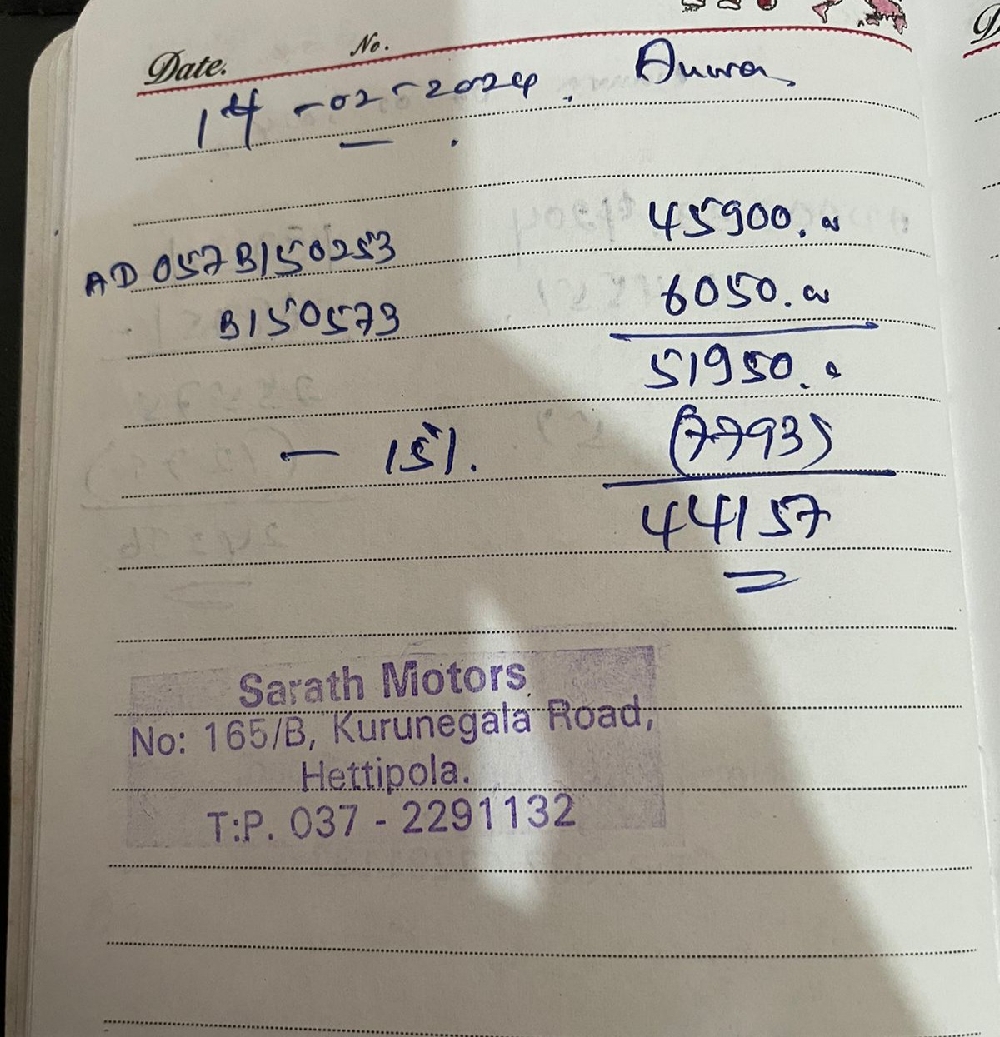 Date. No.
14-02-2024.
AD 057B150253 45900.00
B150579 6050.00
51950.00
- 15%. (7793)
44157
Sarath Motors
No: 165/B, Kurunegala Road,
Hettipola.
T:P. 037 - 2291132